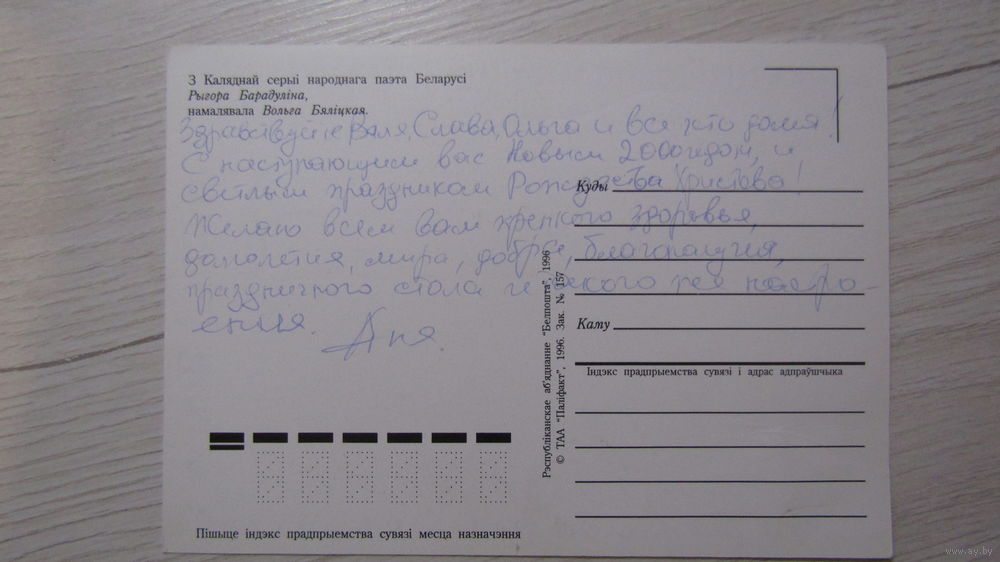 З Каляднай серыі народнага паэта Беларусі
Рыгора Барадуліна,
намалявала Вольга Бяліцкая.
Здравствуйте Валя, Слава, Ольга и все кто дома!
С наступающим вас Новым 2000годом, и
светлым праздником Рождества Христова!
Желаю всем вам крепкого здоровья,
долголетия, мира, добра, благополучия,
праздничного стола и такого же настро-
ения. Аня.
Куды
Каму
Індэкс прадпрыемства сувязі і адрас адпраўшчыка
Рэспубліканскае аб'яднанне "Белпошта", 1996
© ТАА "Паліфакт", 1996. Зак. № 157
Пішыце індэкс прадпрыемства сувязі месца назначэння
www.ay.by